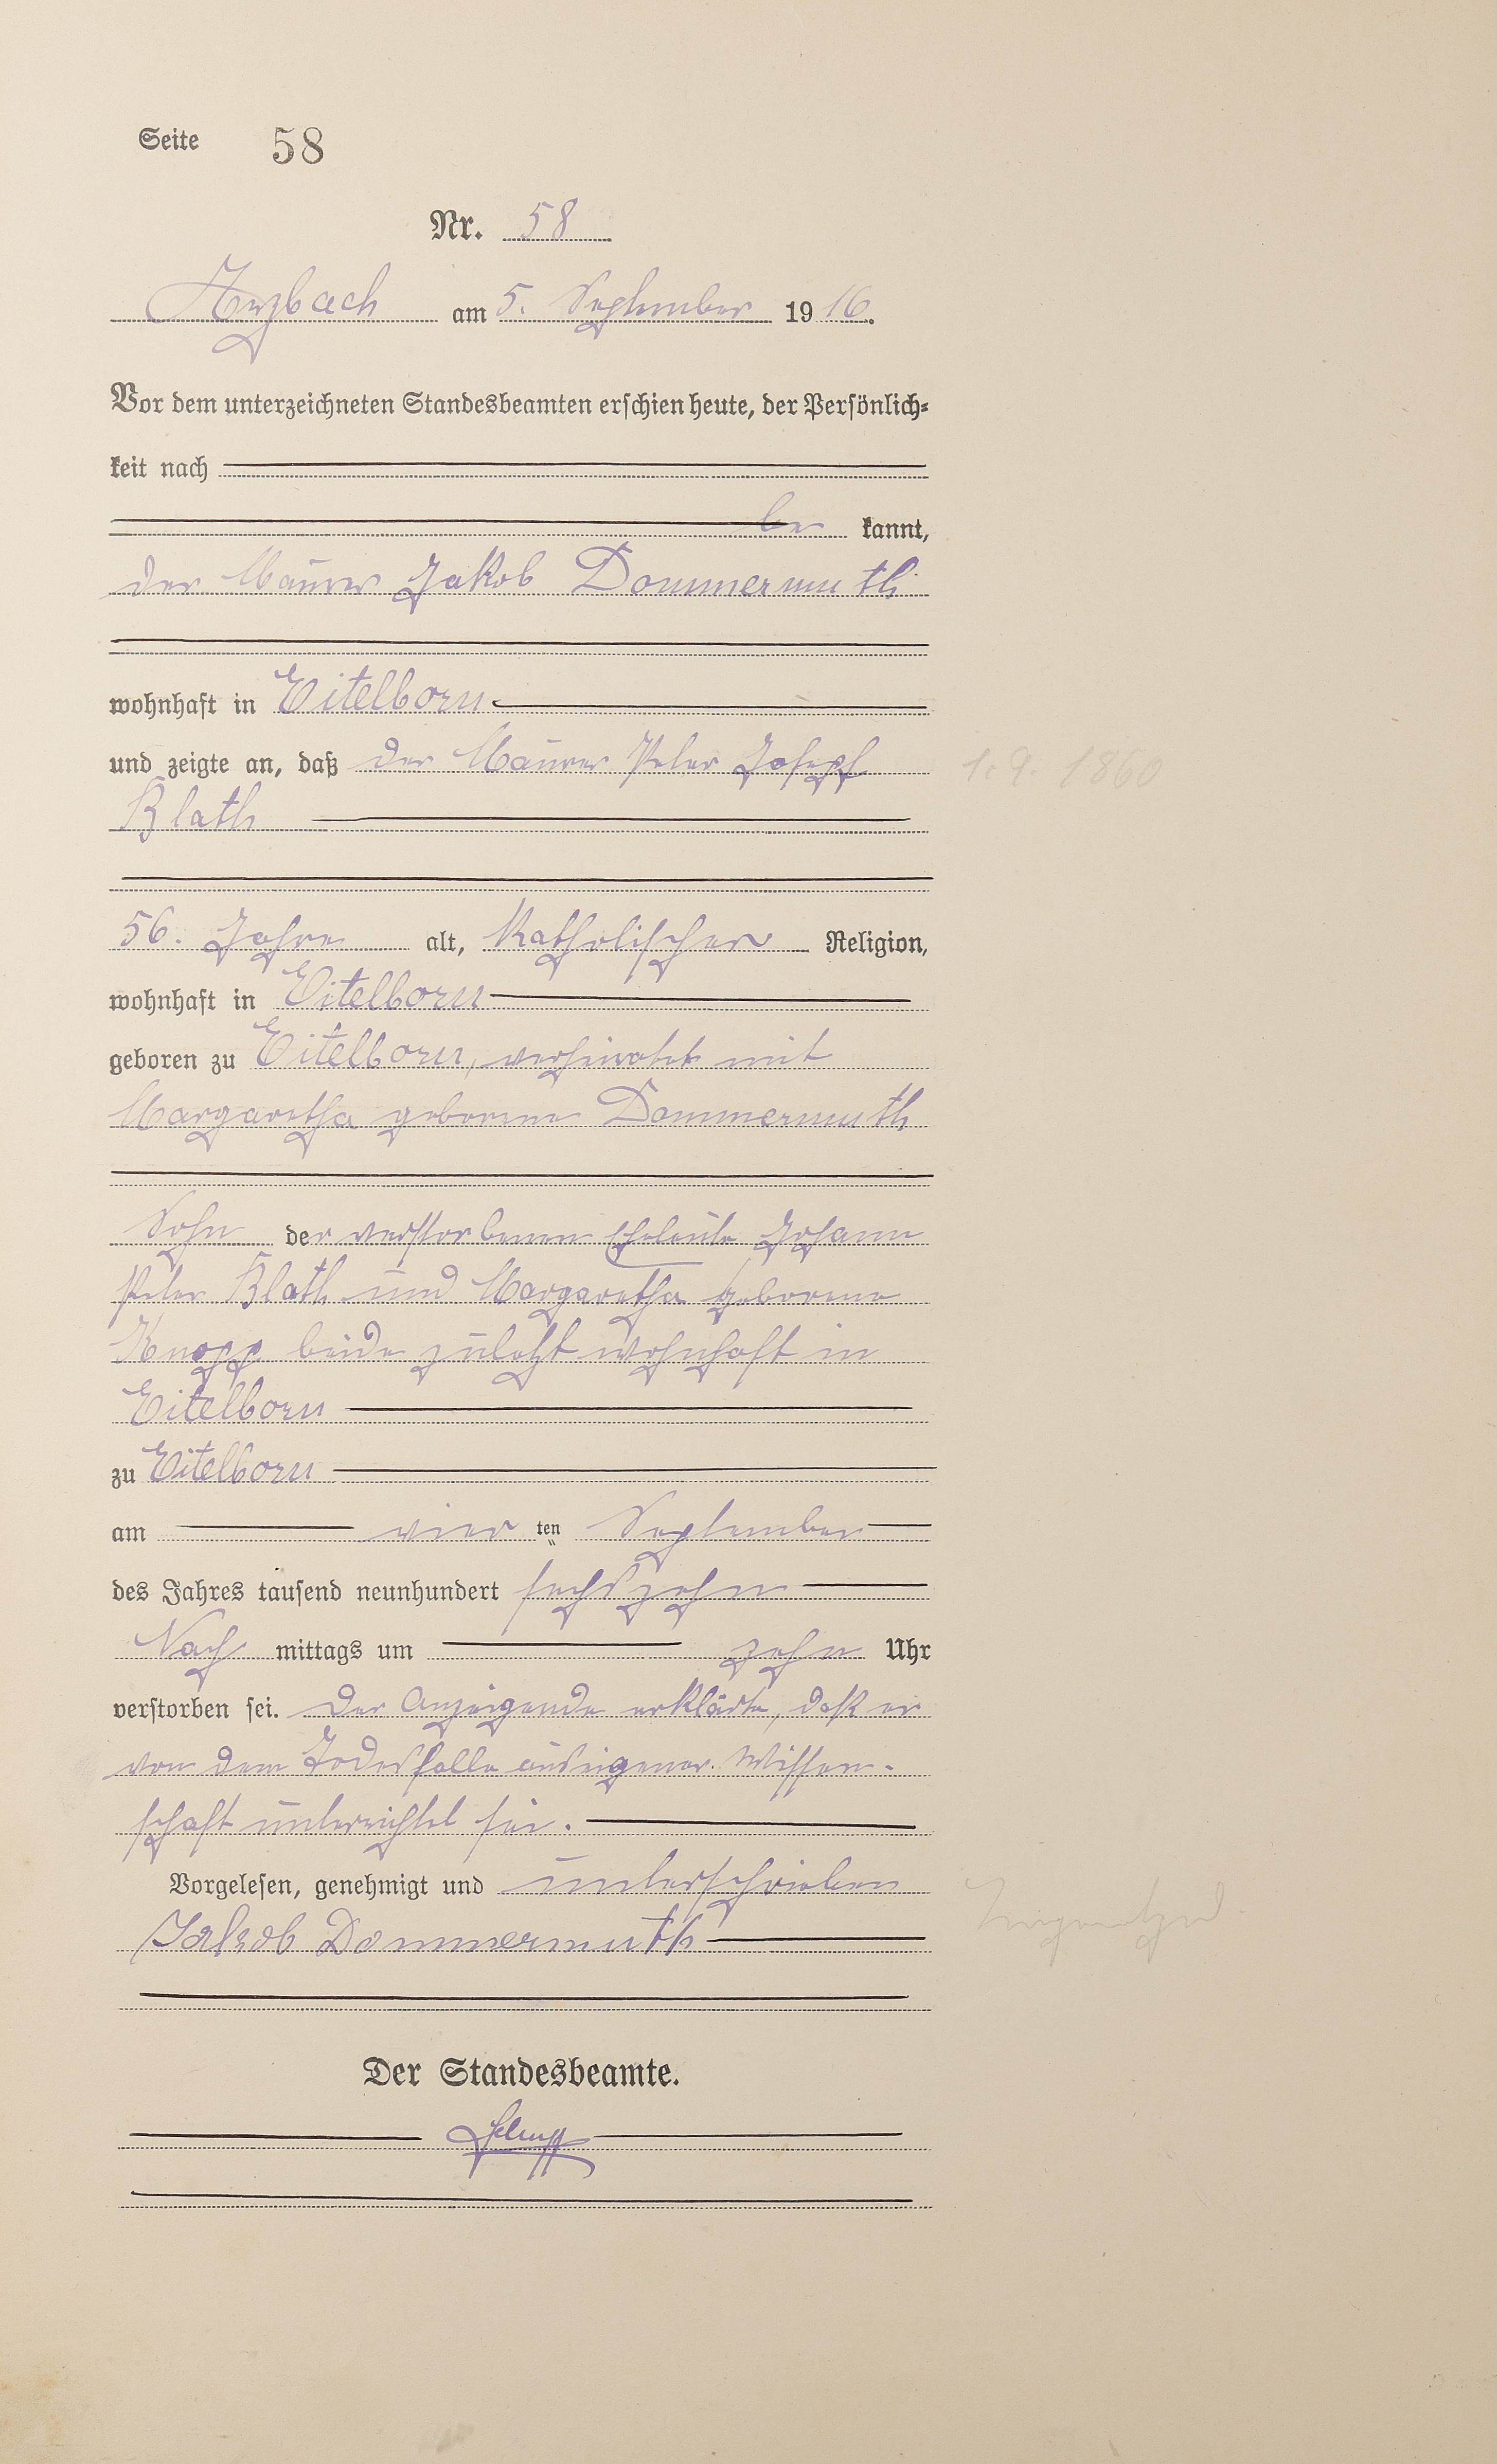 Seite 58
Nr. 58
Arzbach am 5. September 1916.
Vor dem unterzeichneten Standesbeamten erschien heute, der Persönlich-
keit nach
be kannt,
der Maurer Jakob Dommermuth
wohnhaft in Eitelborn
und zeigte an, daß der Maurer Peter Josef
1. 9. 1860
Blath
56. Jahre alt, Katholischer Religion,
wohnhaft in Eitelborn
geboren zu Eitelborn, verheiratet mit
Margaretha geborene Dommermuth
Sohn der verstorbenen Eheleute Johann
Peter Blath und Margaretha geborene
Knopp beide zuletzt wohnhaft in
Eitelborn
zu Eitelborn
am vier ten September
des Jahres tausend neunhundert sechszehn
Nach mittags um zehn Uhr
verstorben sei. Der Anzeigende erklärte, daß er
von dem Todesfalle aus eigener Wissen-
schaft unterrichtet sei.
Vorgelesen, genehmigt und unterschrieben
Jakob Dommermuth
Der Standesbeamte.